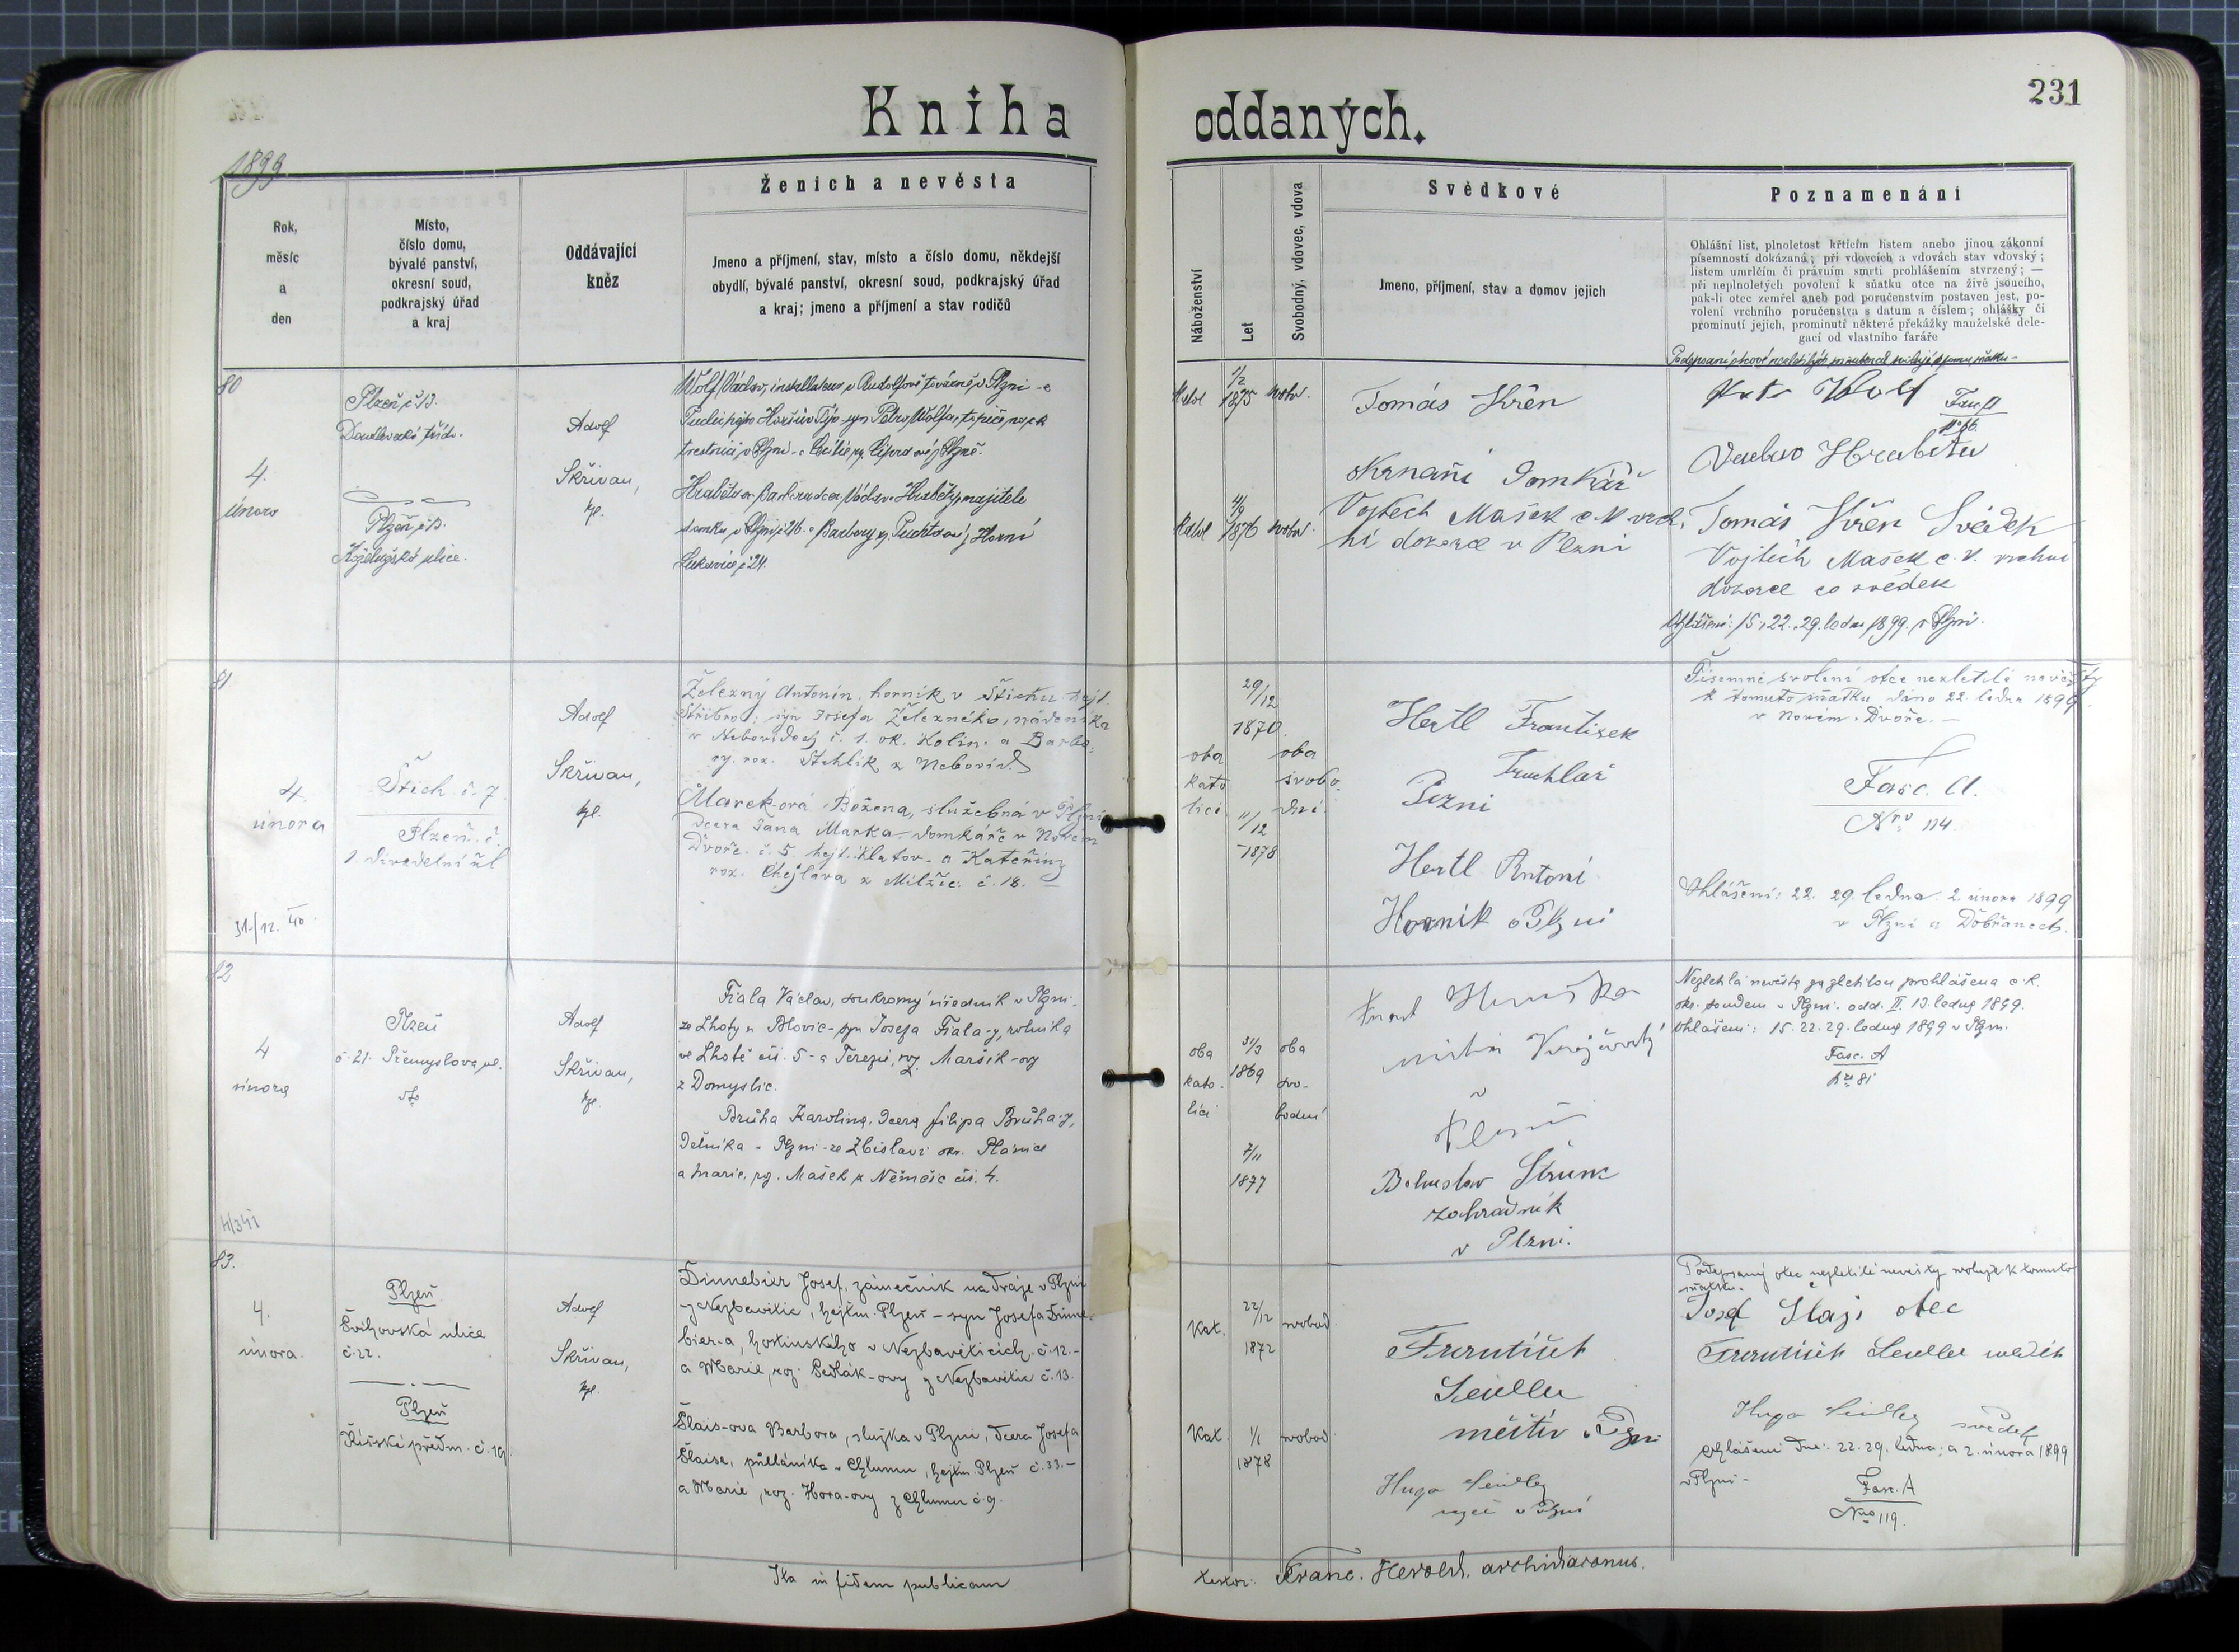 Kniha oddaných.
231
1899
Ženich a nevěsta
Svědkové
Poznamenání
Rok,
měsíc
a
den
Místo,
číslo domu,
bývalé panství,
okresní soud,
podkrajský úřad
a kraj
Oddávající
kněz
Jmeno a příjmení, stav, místo a číslo domu, někdejší
obydlí, bývalé panství, okresní soud, podkrajský úřad
a kraj; jmeno a příjmení a stav rodičů
Náboženství
Let
Svobodný, vdovec, vdova
Jmeno, příjmení, stav a domov jejich
Ohlášní list, plnoletost křticím listem anebo jinou zákonní
písemností dokázaná; při vdovcích a vdovách stav vdovský;
listem umrlčím či právním smrti prohlášením stvrzený; —
při neplnoletých povolení k sňatku otce na živě jsoucího,
pak-li otec zemřel aneb pod poručenstvím postaven jest, po-
volení vrchního poručenstva s datum a číslem; ohlášky či
prominutí jejich, prominutí některé překážky manželské dele-
gací od vlastního faráře
80
4.
února
Plzeň, č. 13.
Doudlevecká třída.
Plzeň, č. 13.
Koželužská ulice.
Adolf
Skřivan,
kpl.
Wolf Václav, installateur v Rudolfově továrně v Plzni - z
syn Petra Wolfa, topiče na c. k.
trestnici v Plzni - a Cecilie
Hrabětova Barbora, dcera Václava Hraběty, majitele
domku v Plzni č. 26 - a Barbory, roz. z Horní
Lukavice č. 24.
1/2
1875
4/9
1876
Tomás Křěn
domkář
Vojtěch Mašek c. k. vrch-
ní dozorce v Plzni
Wolf
Fasc. A
Tomás Křěn Svědek
Vojtěch Mašek c. k. vrchní
dozorce co svědek
Ohlášení: 15., 22., 29. ledna 1899. v Plzni.
81
4.
února
31./12. 40.
Štich č. 7
Plzeň č.
1. divadelní ul
Adolf
Skřivan,
kpl.
Železný Antonín, horník v Štichu hejt.
Stříbro; syn Josefa Železného, nádeníka
v Nebovidech č. 1. ok. Kolín. a Barbo-
ry. roz. Stehlík z Nebovid.
Marek-ová Božena, služebná v Plzni
dcera Jana Marka, domkáře v Novém
Dvoře č. 5 hejt. Klatov - a Kateřiny
roz. Chejlava z Milžic č. 18. —
oba
kato
líci
29/12
1870.
11/12
1878
oba
svobo
dní.
Hertl Frantisek
Truchlař
Plzni
Hertl Antoní
Hornik v Plzni
Písemné svolení otce nezletilé nevěsty
k tomuto sňatku dáno 22. ledna 1899
v Novém Dvoře. —
Fasc. A.
Nro 114.
Ohlášení: 22. 29. ledna 2. února 1899
v Plzni a Dobřanech.
82
4
února
Plzeň
č. 21. Přemyslova ul.
Adolf
Skřivan,
kpl.
Fiala Václav, soukromý úředník v Plzni
ze Lhoty u Blovic - syn Josefa Fiala-y, rolníka
ve Lhotě čís. 5 - a Terezie, roz. Maršík-ovy
z Domyslic.
Brůha Karolina, dcera Filipa Brůha-y,
dělníka v Plzni - ze Zbislavi okr. Plánice
a Marie, roz. Mašek z Němčic čís. 4.
oba
kato-
líci
31/3
1869
7/11
1877
oba
svo-
bodní
Bohuslav Strunc
zahradník
v Plzni.
Nezletilá nevěsta za zletilou prohlášena c. k.
okr. soudem v Plzni. odd. II. 13. ledna 1899.
Ohlášení: 15. 22. 29. ledna 1899 v Plzni.
Fasc. A
Nro 81
83.
4.
února.
Plzeň
Švihovská ulice
č. 22.
Plzeň
Říšské předm. č. 19.
Adolf
Skřivan,
kpl.
Dinnebier Josef, zámečník na dráze v Plzni
z Nezbavětic, hejtm. Plzeň – syn Josefa Dinne-
bier-a, hostinského v Nezbavěticích č. 12. –
a Marie, roz. Sedlák-ovy z Nezbavětic č. 13.
Šlais-ova Barbora, služka v Plzni, dcera Josefa
Šlaise, půlláníka v Chlumu, hejtm. Plzeň č. 33. –
a Marie, roz. Hora-ovy z Chlumu č. 9.
Kat.
22/12
1872
svobod.
Kat.
1/1
1878
svobod.
František
Seidler
v Plzni
Hugo Seidler
v Plzni
Podepsaný otec nezletilé nevěsty svoluje k tomuto
sňatku.
Josef Šlajs otec
František Seidler svědek
Hugo Seidler svědek
Ohlášení dne: 22. 29. ledna; a 2. února 1899
v Plzni –
Fasc. A
Nro 119.
Ita in fidem publicam
Franc. Herold, archidiaconus.